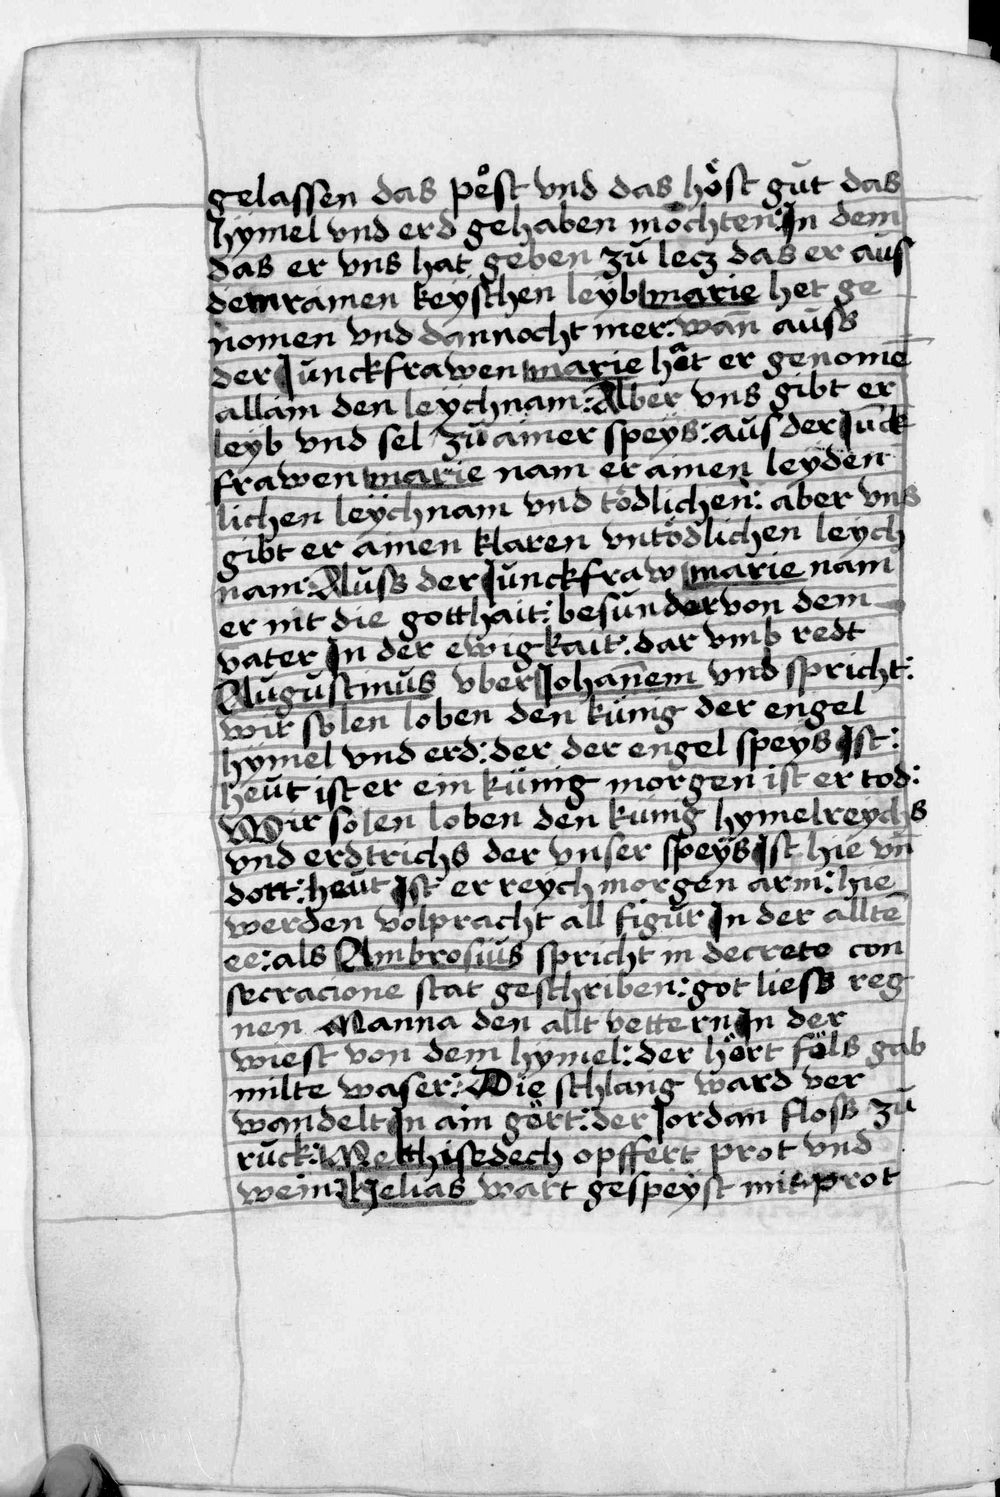 gelassen das pe̊st vnd das höst gůt das
hymel vnd erd gehaben möchten: In dem
das er vns hat geben zů lecz das er aůs
dem rainen keyschen leyb marie het ge
nomen vnd dannocht mer: wan̄ aůss
der Junckfrawen marie hat er genomē
allain den leychnam: Aber vns gibt er
leyb vnd sel zů ainer speys: aůs der Junck
frawen marie nam er ainen leyden
lichen leychnam vnd tödlichen: aber vns
gibt er ainen klaren vntödlichen leych
nam: Auss der Junckfraw marie nam
er nit die gotthait: besůnder von dem
vater In der ewigkait: dar vmb redt
Augustinus vber Johan̄em vnd spricht:
wir solen loben den künig der engel
hymel vnd erd: der der engel speys Ist:
heůt ist er ein künig morgen ist er tod:
Wir solen loben den künig hymelreychs
vnd erdtrichs der vnser speys Ist hie vn̄
dort: heůt Ist er reych morgen arm: hie
werden volpracht all figůr In der alltē
ee: als Ambrosius spricht in decreto con
secracione stat geschriben: got liess reg
nen Manna den allt vettern In der
wiest von dem hymel: der hört föls gab
milte waser: Die schlang ward ver
wandelt In ain gört: der Jordan floss zů
ruck: Melchisedech opffert prot vnd
wein: Helias wart gespeyst mit prot